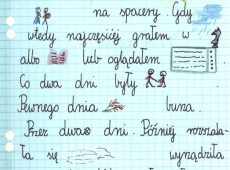 na spacery. Gdy
wtedy najczęściej grałem w
albo lub oglądałem
Co dwa dni były
Pewnego dnia burza.
Przez dwa dni. Później rozszala-
ła się wyrządziła